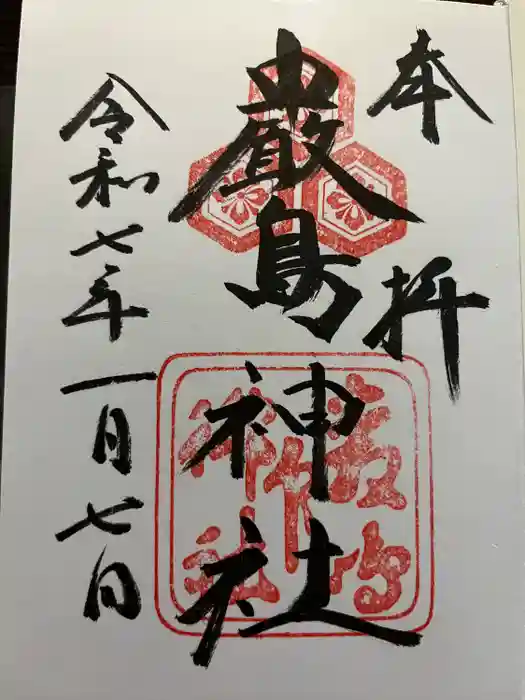 奉拝
厳島神社
令和七年一月七日